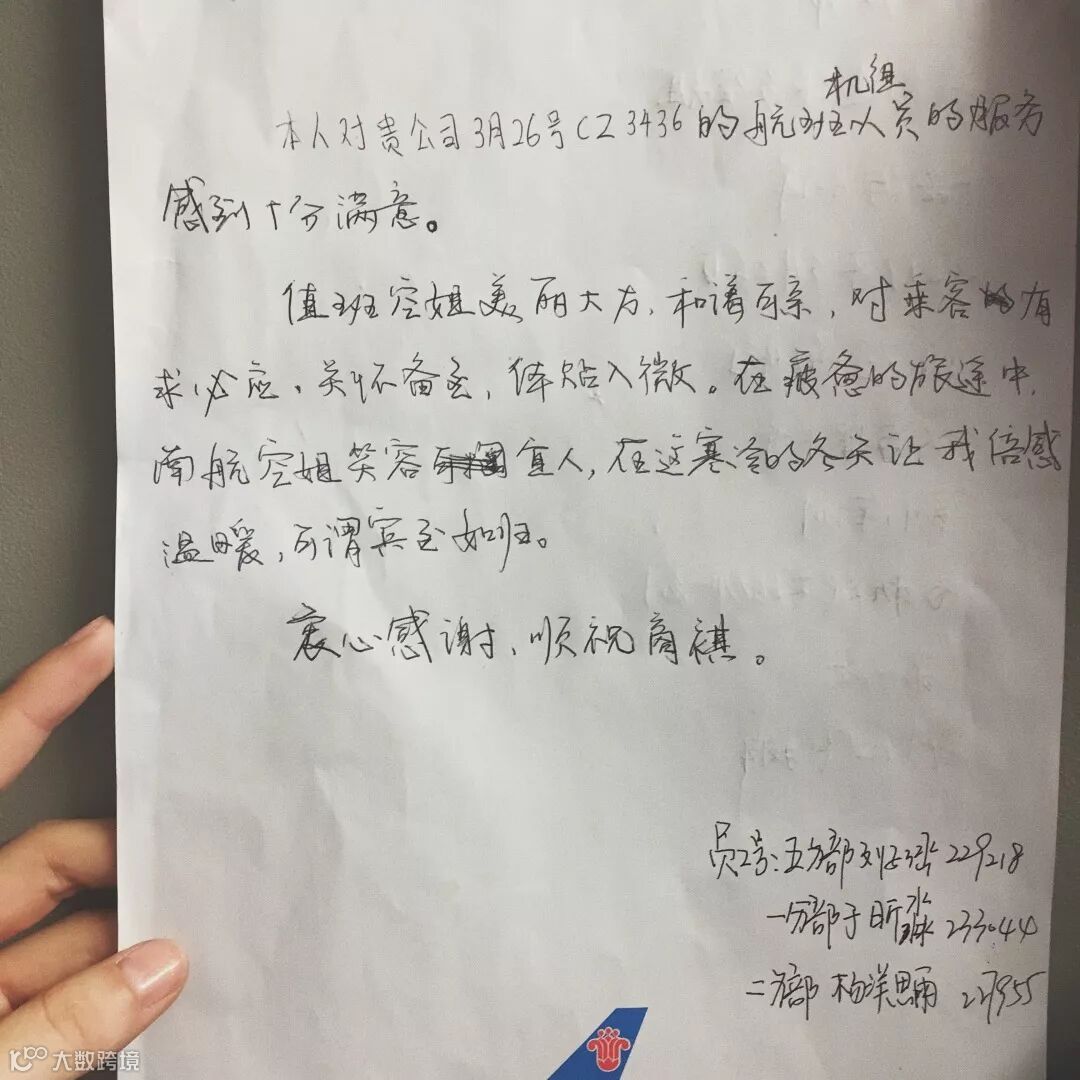 机组
本人对贵公司3月26号CZ3436的航班人员的服务
感到十分满意。
值班空姐美丽大方、和谐可亲，对乘客有
求必应、关怀备至，体贴入微。在疲惫的旅途中，
南航空姐笑容宜人，在这寒冷的冬天让我倍感
温暖，可谓宾至如归。
衷心感谢，顺祝商祺。
员工号：五分部 229218
一分部于昕淼 233044
二分部 杨洋思雨 227955
大数跨境